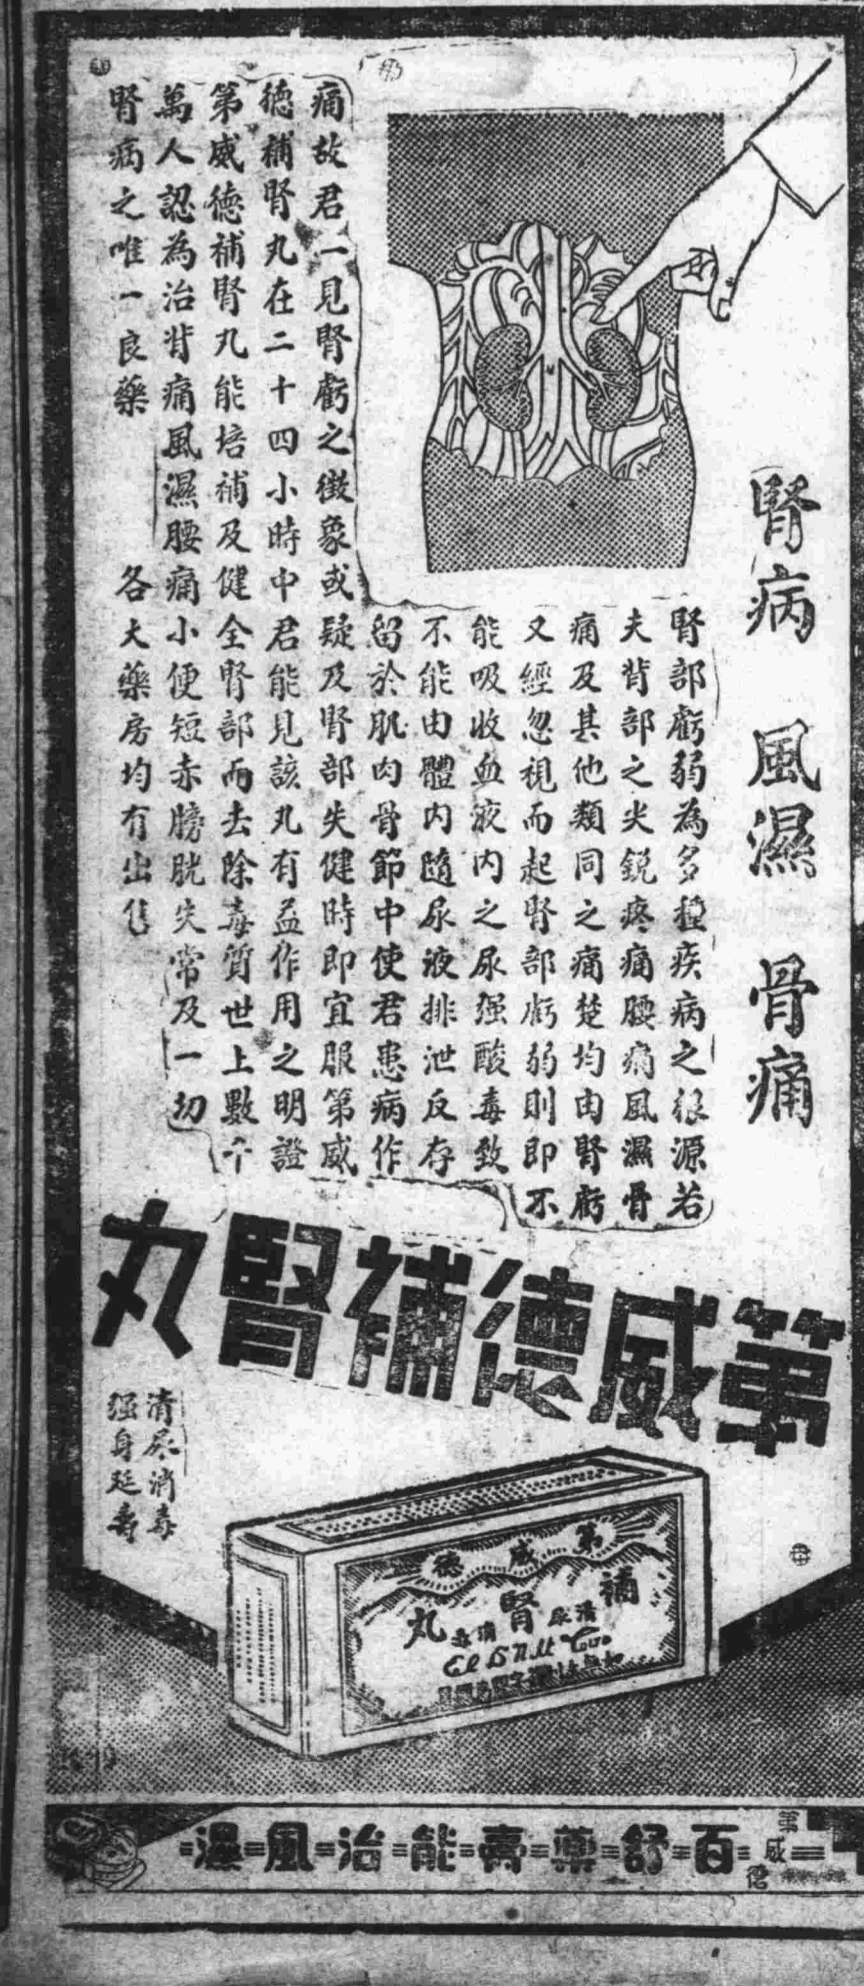 腎病　風濕　骨痛
腎部虧弱為多種疾病之根源若
夫背部之尖銳疼痛腰痛風濕骨
痛及其他類同之痛楚均由腎虧
又經忽視而起腎部虧弱則即不
能吸收血液内之尿强酸毒致
不能由體内隨尿液排泄反存
留於肌肉骨節中使君患病作
痛故君一見腎虧之徵象或疑及腎部失健時即宜服第威
德補腎丸在二十四小時中君能見該丸有益作用之明證
第威德補腎丸能培補及健全腎部而去除毒質世上數千
萬人認為治背痛風濕腰痛小便短赤膀胱失常及一切
腎病之唯一良藥　各大藥房均有出售
第威德補腎丸
清尿消毒
强身延壽
第威德
補腎丸
清尿
消毒
第威德
百舒藥膏能治風濕